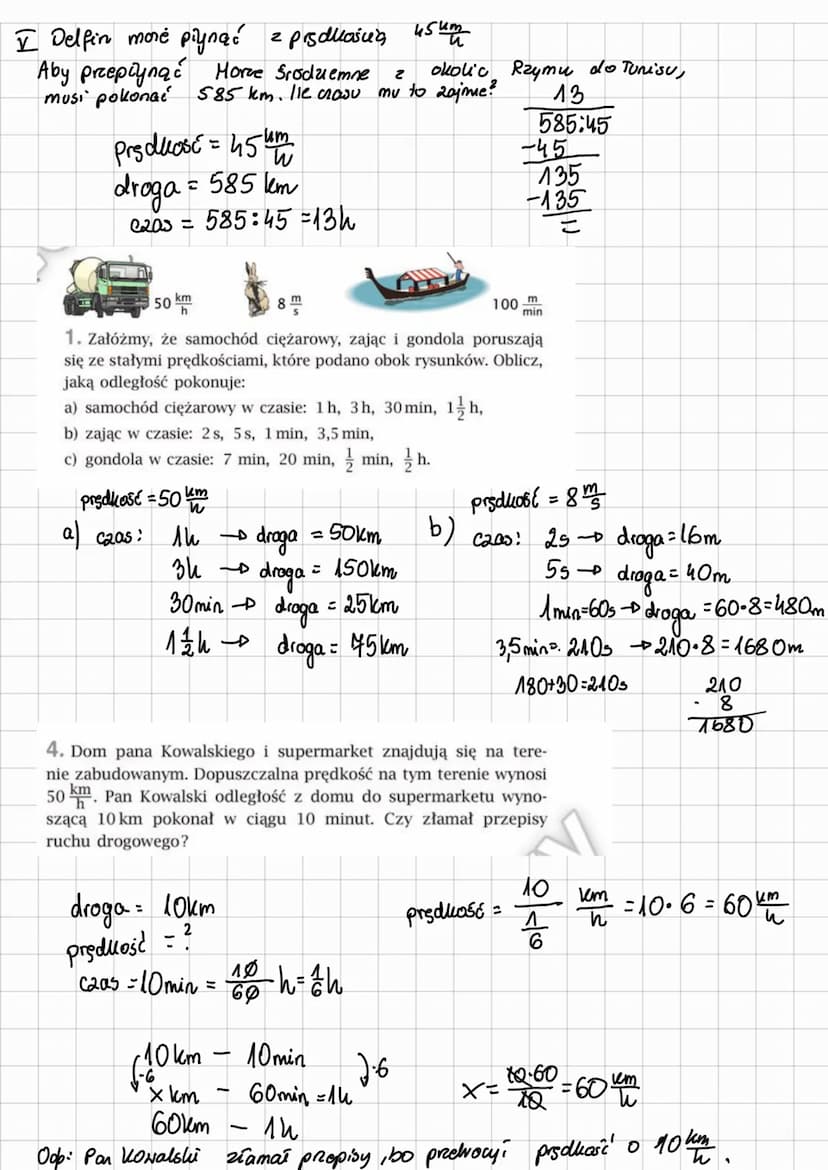 V Delfin może płynąć z prędkością 45 km/h
Aby przepłynąć Morze Śródziemne z okolic Rzymu do Tunisu,
musi pokonać 585 km. Ile czasu mu to zajmie?
13
585:45
-45
135
-135
=
prędkość = 45 km/h
droga = 585 km
czas = 585:45 = 13h
50 km/h
8 m/s
100 m/min
1. Załóżmy, że samochód ciężarowy, zając i gondola poruszają
się ze stałymi prędkościami, które podano obok rysunków. Oblicz,
jaką odległość pokonuje:
a) samochód ciężarowy w czasie: 1 h, 3 h, 30 min, 1 1/2 h,
b) zając w czasie: 2 s, 5 s, 1 min, 3,5 min,
c) gondola w czasie: 7 min, 20 min, 1/2 min, 1/2 h.
prędkość = 50 km/h
a) czas: 1h → droga = 50km
3h → droga = 150km
30min → droga = 25km
1 1/2 h → droga = 75km
prędkość = 8 m/s
b) czas: 2s → droga = 16m
5s → droga = 40m
1min=60s → droga = 60·8=480m
3,5min= 210s → 210·8=1680m
180+30=210s
210
· 8
1680
4. Dom pana Kowalskiego i supermarket znajdują się na tere-
nie zabudowanym. Dopuszczalna prędkość na tym terenie wynosi
50 km/h. Pan Kowalski odległość z domu do supermarketu wyno-
szącą 10 km pokonał w ciągu 10 minut. Czy złamał przepisy
ruchu drogowego?
droga = 10km
prędkość = ?
czas = 10min = 10/60 h = 1/6 h
prędkość = 10/(1/6) km/h = 10·6 = 60 km/h
10km – 10min
·6 ·6
x km – 60min = 1h
60km – 1h
x = 10·60/10 = 60 km/h
Odp: Pan Kowalski złamał przepisy, bo przekroczył prędkość o 10 km/h.